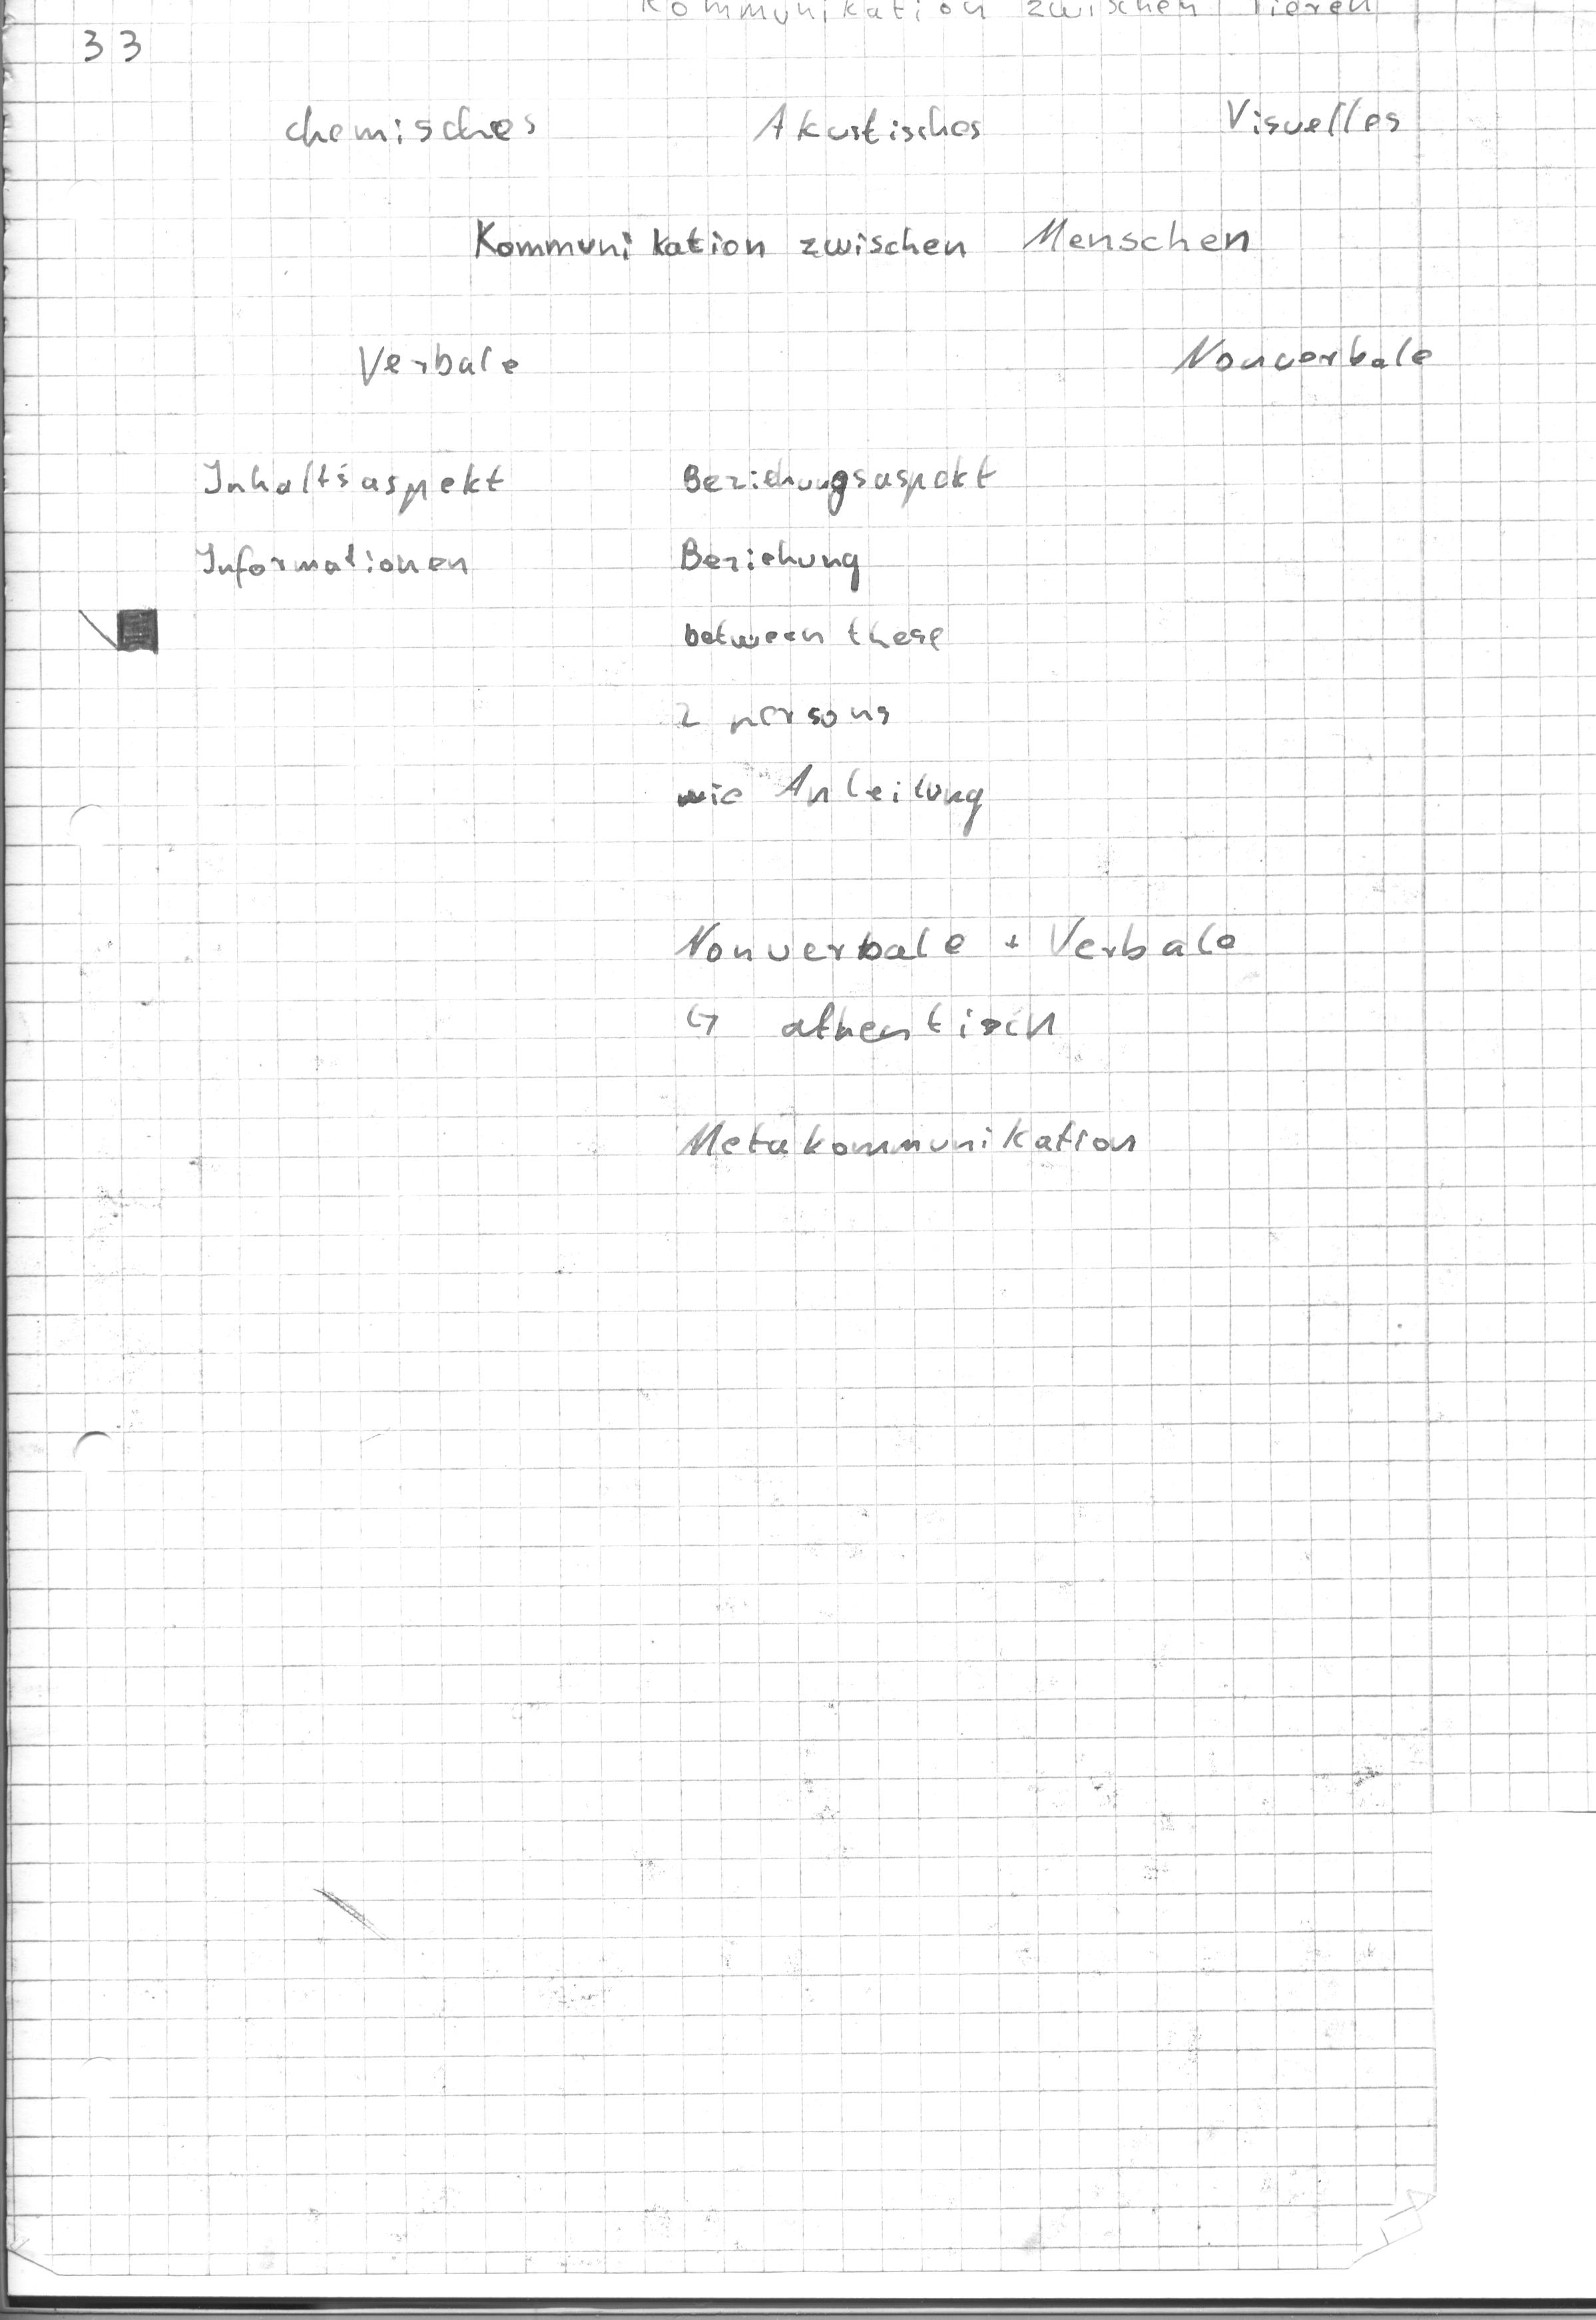 Kommunikation zwischen Tieren
33
chemisches Akustisches Visuelles
Kommunikation zwischen Menschen
Verbale Nonverbale
Inhaltsaspekt Beziehungsaspekt
Informationen Beziehung
between these
2 persons
wie Anleitung
Nonverbale + Verbale
↳ athentisch
Metakommunikation